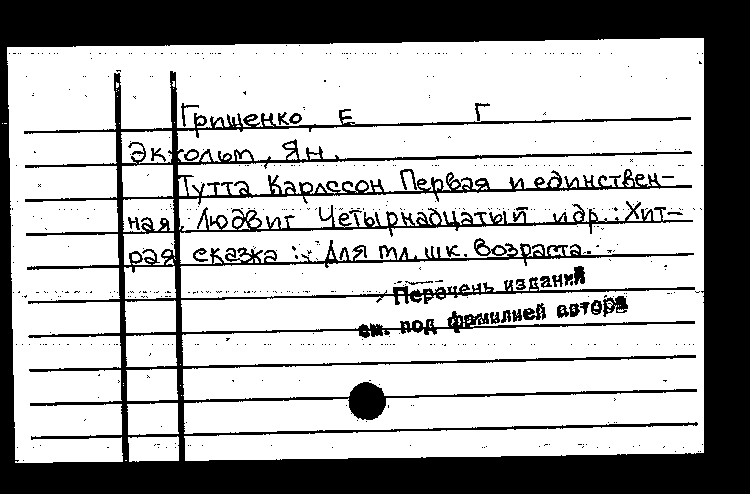 Грищенко, Е Г
Экхольм, Ян.
Тутта Карлссон Первая и единствен-
ная, Людвиг Четырнадцатый и др.: Хит-
рая сказка : Для мл. шк. возраста.
Перечень изданий
см. под фамилией автора